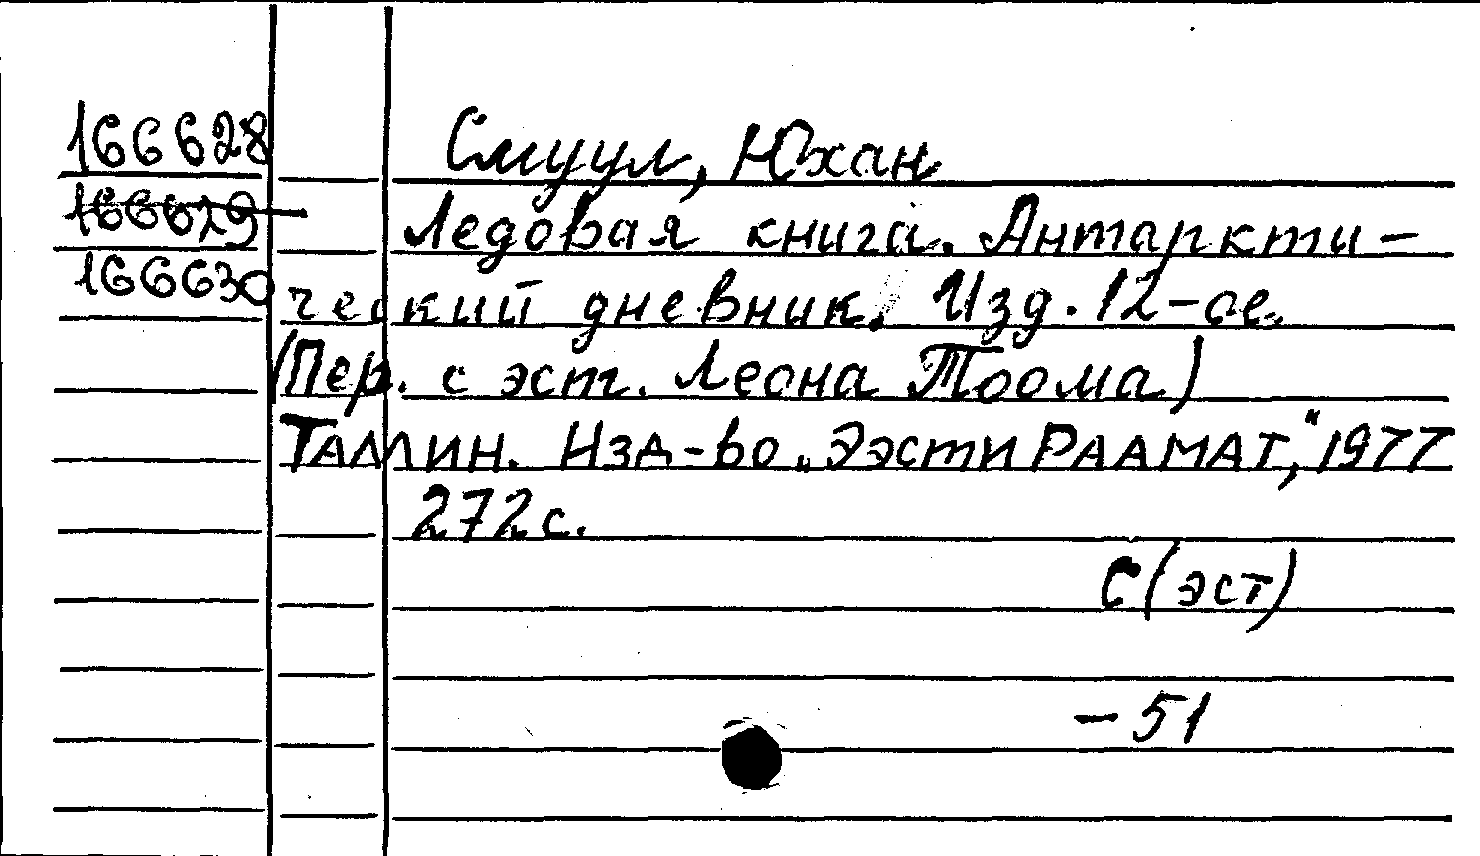 166628 Смуул, Юхан
166629 Ледовая книга. Антаркти-
166630 ческий дневник. Изд. 12-ое.
(Пер. с эст. Леона Тоома)
Таллин. Изд-во „Ээсти Раамат," 1977
272 с.
С(эст)
-51